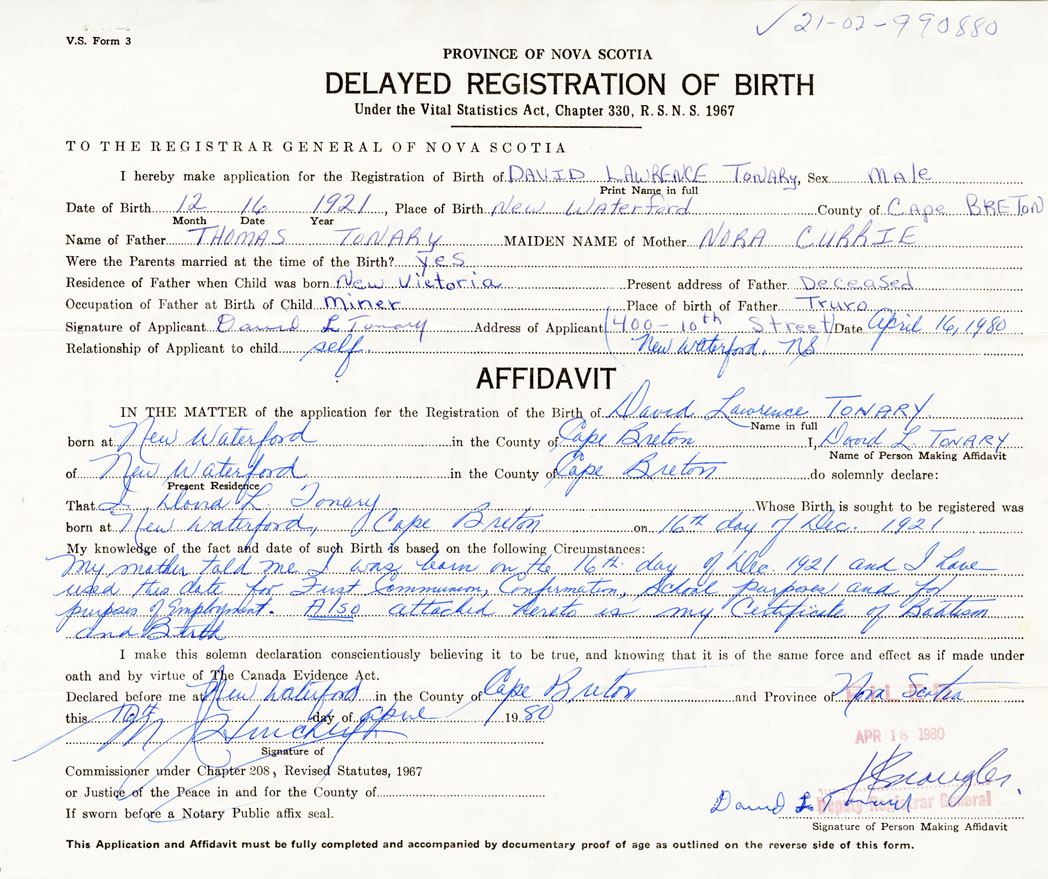 ✓21-02-990880
V.S. Form 3
PROVINCE OF NOVA SCOTIA
DELAYED REGISTRATION OF BIRTH
Under the Vital Statistics Act, Chapter 330, R.S.N.S. 1967
TO THE REGISTRAR GENERAL OF NOVA SCOTIA
I hereby make application for the Registration of Birth of DAVID LAWRENCE TONARY, Sex Male
Print Name in full
Date of Birth 12 16 1921, Place of Birth New Waterford County of Cape BRETON
Month Date Year
Name of Father THOMAS TONARY MAIDEN NAME of Mother NORA CURRIE
Were the Parents married at the time of the Birth? yes
Residence of Father when Child was born New Victoria Present address of Father Deceased
Occupation of Father at Birth of Child Miner Place of birth of Father Truro
Signature of Applicant David L Tonary Address of Applicant (400-10th Street) Date April 16, 1980
Relationship of Applicant to child self. New Waterford, NS
AFFIDAVIT
IN THE MATTER of the application for the Registration of the Birth of David Lawrence TONARY
Name in full
born at New Waterford in the County of Cape Breton I, David L. TONARY
Name of Person Making Affidavit
of New Waterford in the County of Cape Breton do solemnly declare:
Present Residence
That I, David L. Tonary Whose Birth is sought to be registered was
born at New Waterford, Cape Breton on 16th day of Dec. 1921
My knowledge of the fact and date of such Birth is based on the following Circumstances:
My mother told me I was born on the 16th day of Dec. 1921 and I have
used this date for First Communion, Confirmation, School purposes and for
purposes of Employment. Also attached hereto is my Certificate of Baptism
and Birth
I make this solemn declaration conscientiously believing it to be true, and knowing that it is of the same force and effect as if made under
oath and by virtue of The Canada Evidence Act.
Declared before me at New Waterford in the County of Cape Breton and Province of Nova Scotia
this day of April 1980
APR 18 1980
Signature of
Commissioner under Chapter 208, Revised Statutes, 1967
or Justice of the Peace in and for the County of
David L Tonary
Deputy Registrar General
If sworn before a Notary Public affix seal.
Signature of Person Making Affidavit
This Application and Affidavit must be fully completed and accompanied by documentary proof of age as outlined on the reverse side of this form.